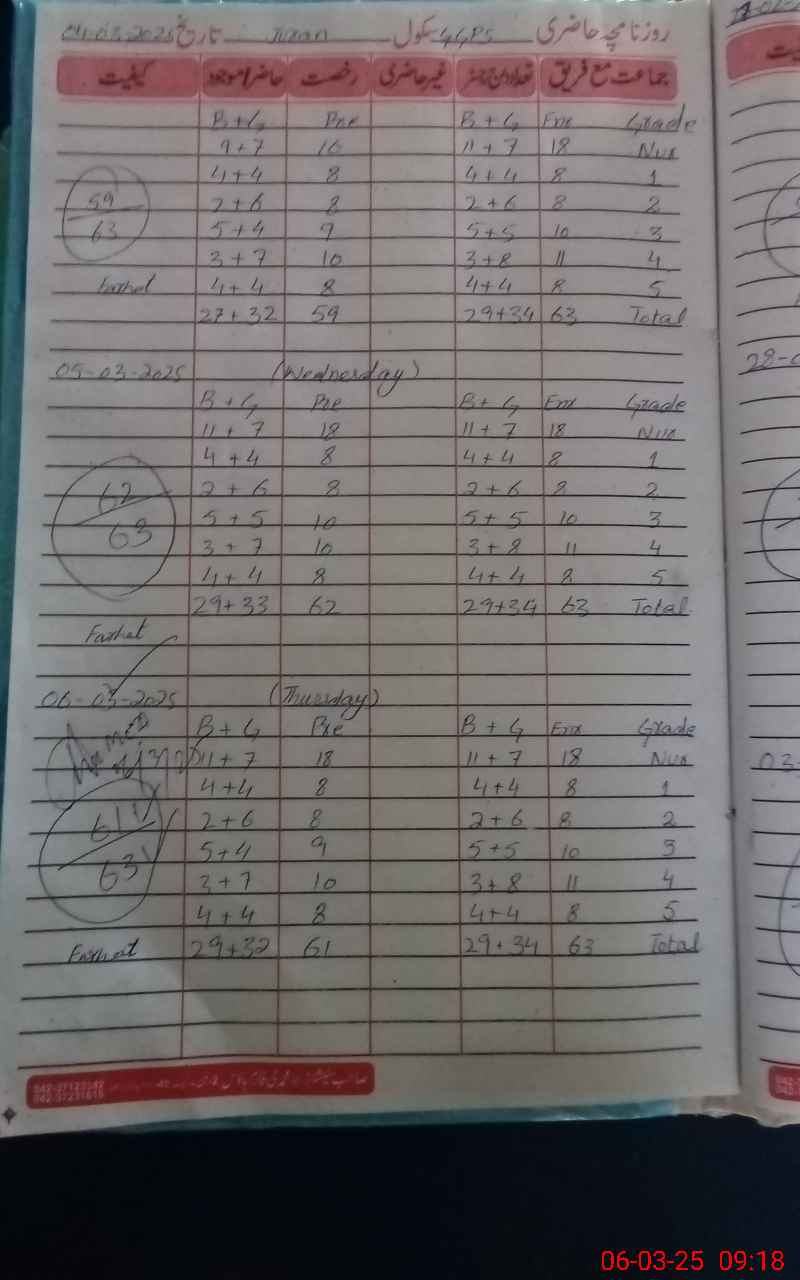 روزنامچہ حاضری GGPS سکول Juxan تاریخ 04-03-2025
جماعت مع فریق تعداد مندرجہ رجسٹر غیر حاضری رخصت حاضر/موجود کیفیت
B + G Pre B + G Enr Grade
9 + 7 16 11 + 7 18 Nur
4 + 4 8 4 + 4 8 1
59 2 + 6 8 2 + 6 8 2
63 5 + 4 9 5 + 5 10 3
3 + 7 10 3 + 8 11 4
Farhat 4 + 4 8 4 + 4 8 5
27 + 32 59 29 + 34 63 Total
05-03-2025 (Wednesday)
B + G Pre B + G Enr Grade
11 + 7 18 11 + 7 18 Nur
4 + 4 8 4 + 4 8 1
62 2 + 6 8 2 + 6 8 2
63 5 + 5 10 5 + 5 10 3
3 + 7 10 3 + 8 11 4
4 + 4 8 4 + 4 8 5
29 + 33 62 29 + 34 63 Total
Farhat
06-03-2025 (Thursday)
B + G Pre B + G Enr Grade
11 + 7 18 11 + 7 18 Nur
4 + 4 8 4 + 4 8 1
61 2 + 6 8 2 + 6 8 2
63 5 + 4 9 5 + 5 10 3
3 + 7 10 3 + 8 11 4
4 + 4 8 4 + 4 8 5
Farhat 29 + 32 61 29 + 34 63 Total
28-0
03-
06-03-25 09:18